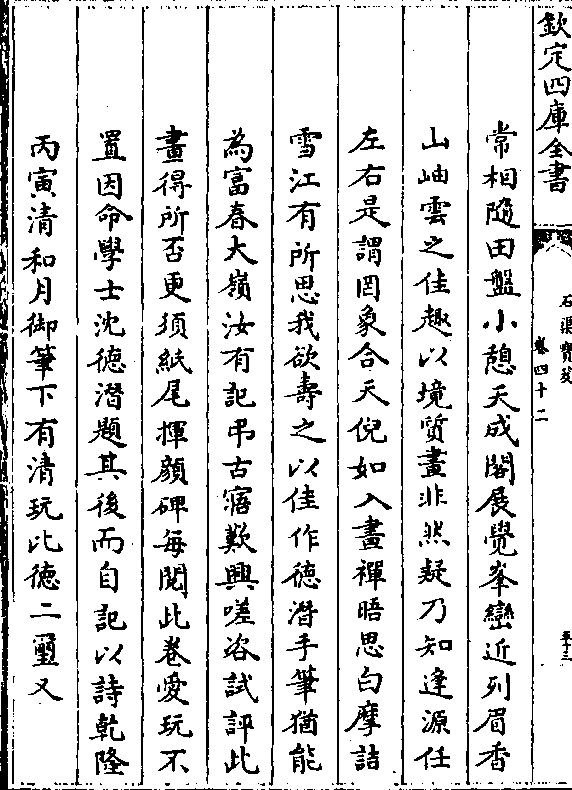 欽定四庫全書
石渠寶笈
卷四十二
五十三
常相隨田盤小憩天成閣展覺峯巒近列眉香
山岫雲之佳趣以境質畫非然疑乃知逢源任
左右是謂罔象合天倪如入畫禪晤思白摩詰
雪江有所思我欲壽之以佳作德潛手筆猶能
為富春大嶺汝有記弔古寤歎興嗟咨試評此
畫得所否更須紙尾揮顔碑每閱此卷愛玩不
置因命學士沈德潛題其後而自記以詩乾隆
丙寅清和月御筆下有清玩比德二璽又